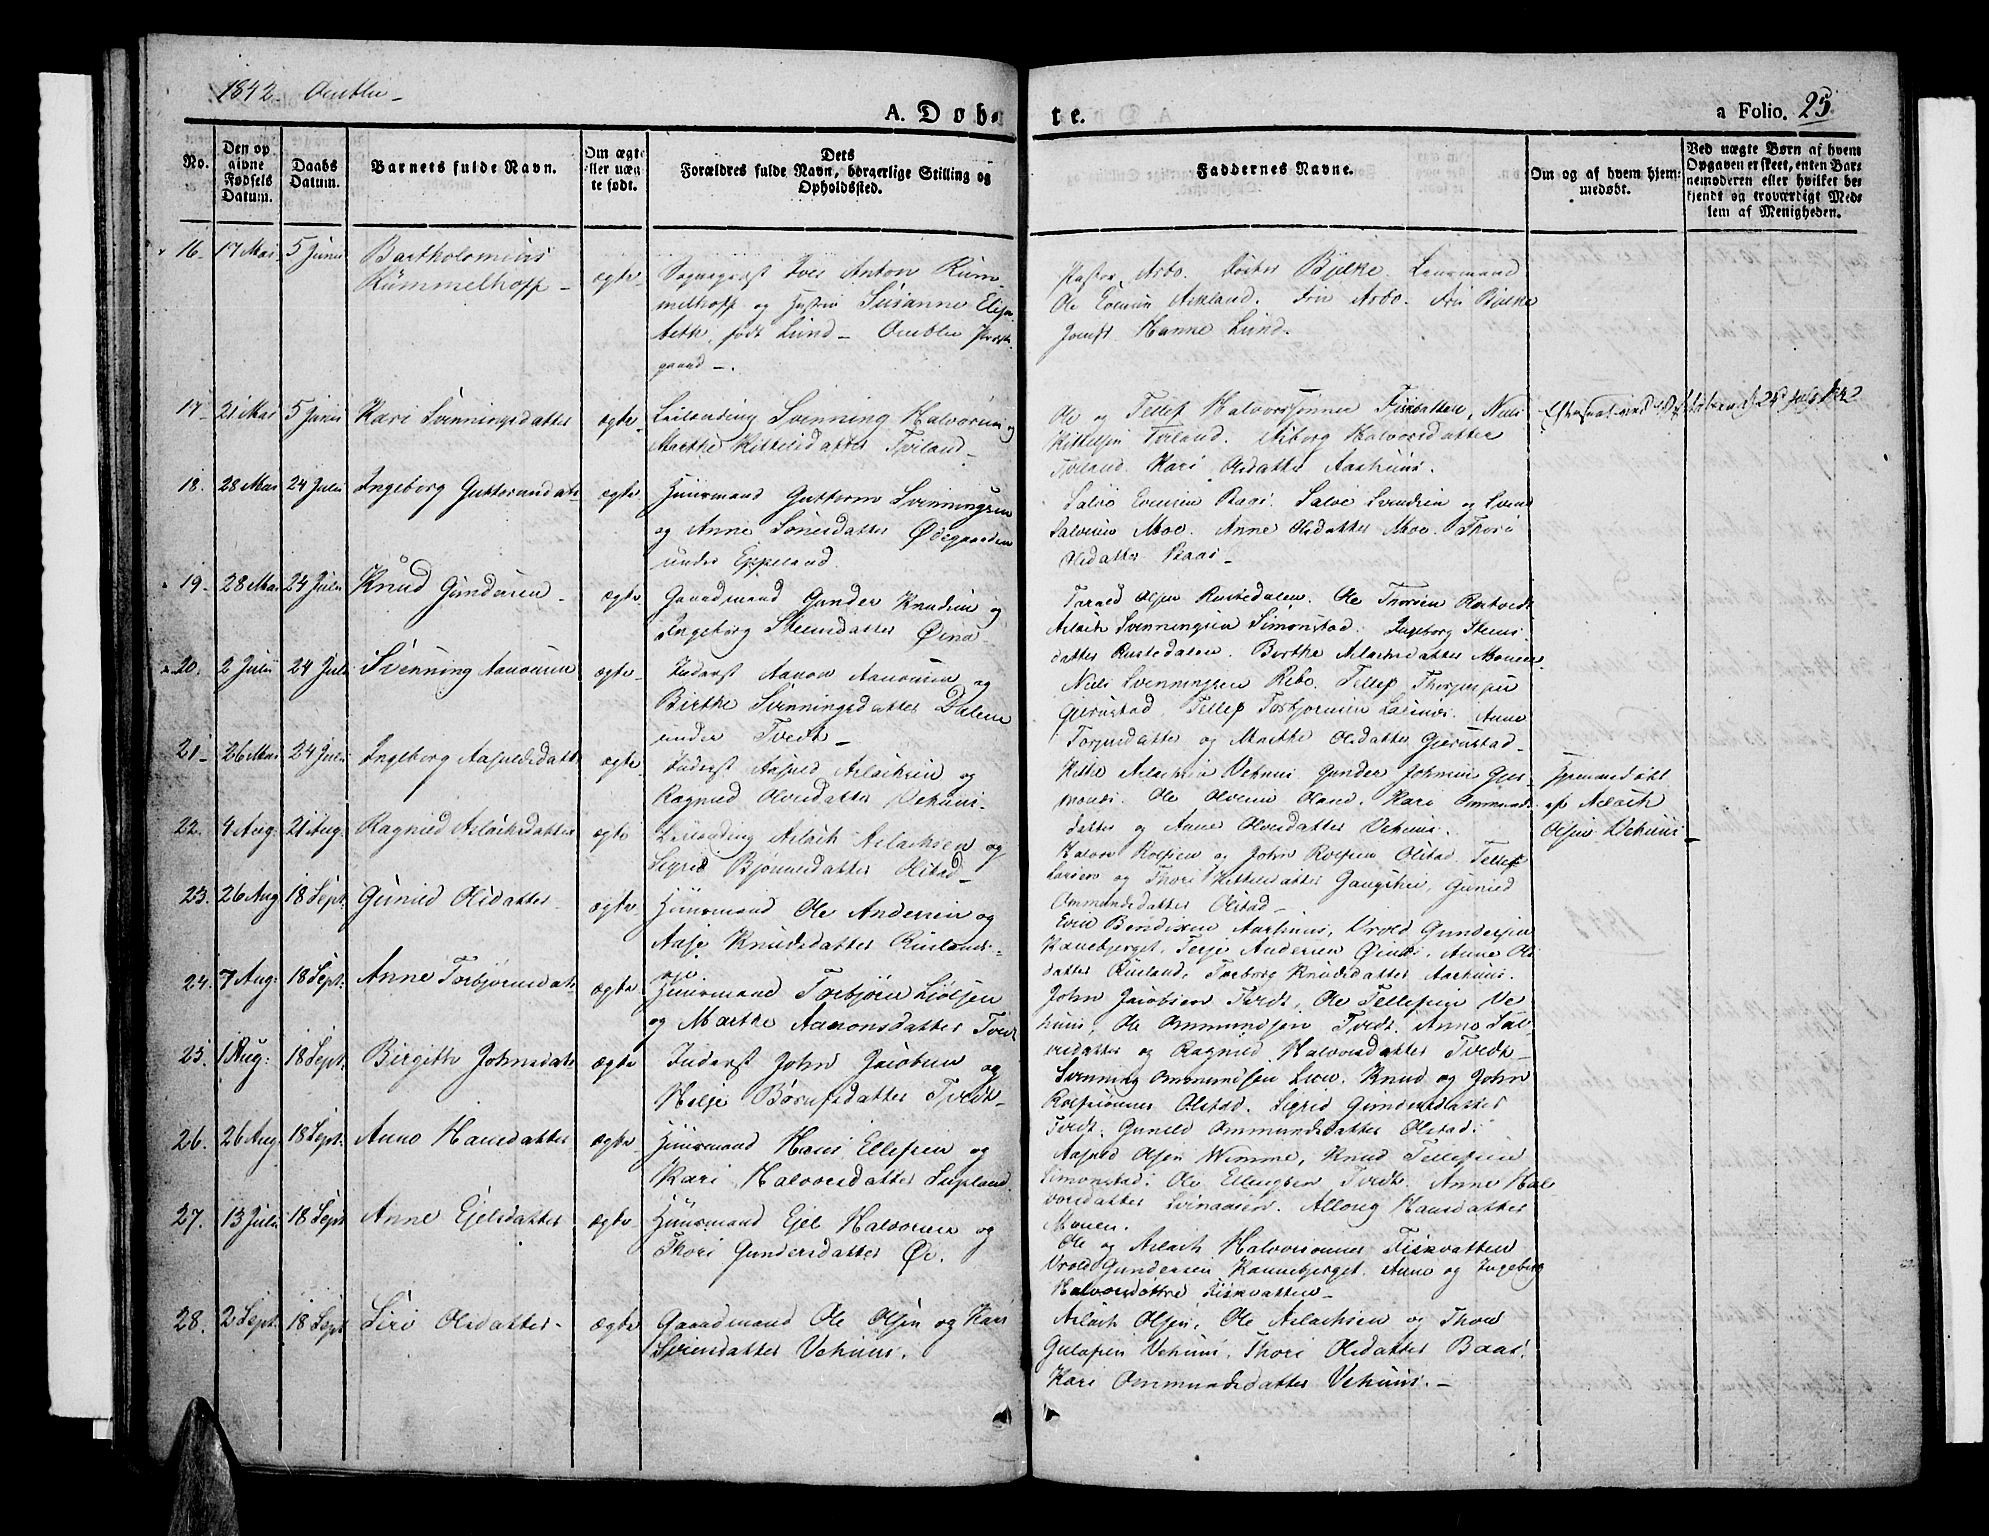 1842 Aamblie
A. Døbte.
a Folio. 25.
No.
Den opgivne Fødsels Datum.
Daabs Datum.
Barnets fulde Navn.
Om ægte eller uægte født.
Dets Forældres fulde Navn, borgerlige Stilling og Opholdssted.
Faddernes Navne.
Om og af hvem hjemmedøbt.
Ved uægte Børn af hvem Opgaven er skeet, enten Barnemoderen eller hvilket bekjendt og troværdigt Medlem af Menigheden.
16. 17 Mai 5 Juni Bartholomæus
Rümmelhoff ægte
Sognepræst Iver Anton Rüm
melhoff og Hustru Susanne Elisa
beth, født Lund
gaard
Pastor Arbo. Bjelke. Lensmand
Ole Askland. Fru Arbo. Fru Bjelke
Jomf. Hanne Lund.
17 21 Mai 5 Juni Kari Svenningsdatter ægte
Leilænding Svenning Halvorsen og
Marthe Kittelsdatter Tveland
Ole og Tellef Halvorsønner Fiskvatten, Niels
Kittelsen Tveland. Asborg Halvorsdatter
Tveland. Kari Olsdatter Aarhuus.
18. 28 Mai 24 Juli Ingeborg Guttormsdatt. ægte
Huusmand Guttorm Svenningsen
og Anne Sørensdatter Ødegaarden
under Eppeland.
Salve Evensen Baas. Salve Svendsen og Svend
Salvesen Moe. Anne Olsdatter Moe. Thore
Olsdatter Baas
19. 28 Mai 24 Juli Knud Gundersen ægte
Gaardmand Gunder Knudsen og
Ingeborg Steensdatter Øinæs
Tarald Olsen Rustedalen. Ole Thorsen Rostvedt
Aslach Svenningsen Simonstad. Ingeborg Steens
datter Rustedalen. Birthe Aslachsdatter Mouen
20. 2 Juli 24 Juli Svenning Aanonsen ægte
Inderst Aanon Aanonsen og
Birthe Svenningsdatter Dalene
under Tvedt
Niels Svenningsen Rebo. Tellef Thorjusen
Gjerustad. Tellef Torbjørnsen Anne
Torjusdatter og Marthe Olsdatter Gjerustad
21 26 Mai 24 Juli Ingeborg Aasuldsdatt. ægte
Inderst Aasuld Aslachsen og
Ragnild Olvesdatter Vehuus.
Kittel Aslachsen Vehuus. Gunder Johnsen Gus
Ole Olvesen Oland. Kari Ommunds
datter og Anne Olvesdatter Vehuus.
Hjemmedøbt
af Aslach
Olsen Vehuus
22. 4 Aug. 21 Aug. Ragnild Aslachsdatter ægte
Leilænding Aslach Aslachsen og
Sigrid Bjørnsdatter Olstad
Halvor Rolfsen og John Rolfsen Olstad. Tellef
Larsen og Thore Kittelsdatter Gunild
Ommundsdatter Olstad
23. 26 Aug 18 Sept. Gunild Olsdatter ægte
Huusmand Ole Andersen og
Aase Knudsdatter Rislands-
Even Bendixen Aarhuus, Vrold Gundersen
Kannebjerget, Terje Andersen Øinæs, Anne Ols
datter Risland, Torborg Knudsdatter Aarhuus.
24. 7 Aug: 18 Sept. Anne Torbjørnsdatt. ægte
Huusmand Torbjørn
og Marthe Aanonsdatter Tvedt
John Jacobsen Tvedt, Ole Tellefsen Ve
huus, Ole Ommundsen Tvedt. Anne Sal
vesdatter og Ragnild Halvorsdatter Tvedt
25. 1 Aug: 18 Sept. Birgitte Johnsdatt. ægte
Inderst John Jacobsen og
Helje Børufsdatter Tvedt
Svenning Ommundsen Lien. Knud og John
Rolfsønner Olstad. Sigrid Gundersdatter
Tvedt. Gunild Ommundsdatter Olstad.
26. 26 Aug 18 Sept. Anne Hansdatter ægte
Huusmand Hans Ellefsen og
Kari Halvorsdatter
Aasuld Olsen Wimme, Knud Tellefsen
Simonstad. Ole Ellingsen Tvedt. Anne Hal
vorsdatter Allong Hansdatter
Mouen.
27. 13 Juli 18 Sept Anne Ejelsdatter ægte
Huusmand Ejel Halvorsen og
Thore Gundersdatter Øi.
Ole og Aslach Halvorsønner Fiskvatten
Vrold Gundersen Kannebjerget. Anne og Ingeborg
Halvorsdøttre Fiskvatten
28. 2 Sept. 18 Sept Siri Olsdatter ægte
Gaardmand Ole Olsen og Kari
Svensdatter Vehuus.
Aslach Olsen, Ole Aslachsen og Thor
Vehuus, Thore Olsdatter Baas.
Kari Ommundsdatter Vehuus.